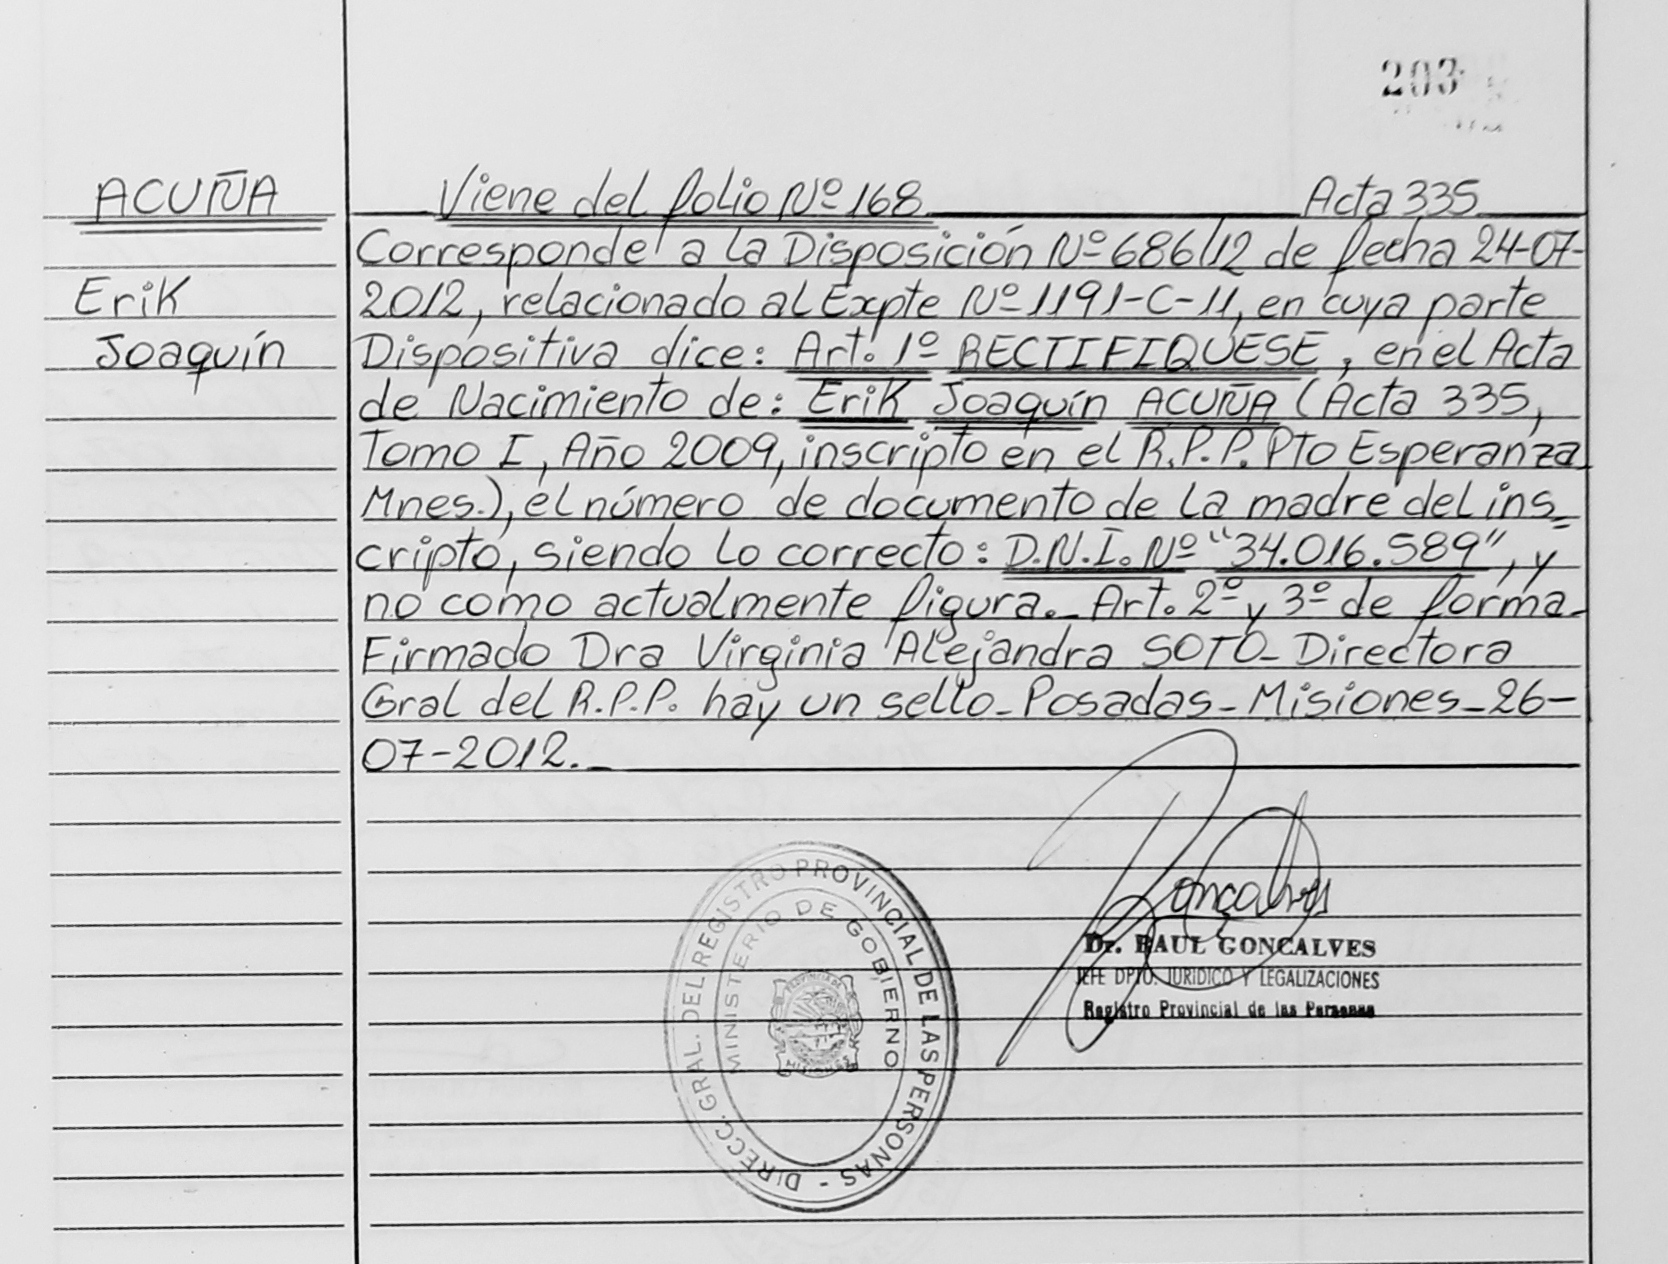 203
ACUÑA
Erik
Joaquín
Viene del folio Nº 168 Acta 335
Corresponde a la Disposición Nº 686/12 de fecha 24-07-
2012, relacionado al Expte Nº 1191-C-11, en cuya parte
Dispositiva dice: Art. 1º RECTIFIQUESE, en el Acta
de Nacimiento de: Erik Joaquín ACUÑA (Acta 335,
Tomo I, Año 2009, inscripto en el R.P.P. Pto Esperanza
Mnes.), el número de documento de la madre del ins_
cripto, siendo lo correcto: D.N.I. Nº "34.016.589", y
no como actualmente figura._ Art. 2º y 3º de forma_
Firmado Dra Virginia Alejandra SOTO_ Directora
Gral del R.P.P. hay un sello_ Posadas_ Misiones_ 26-
07-2012._
Goncalves
Dr. RAUL GONCALVES
JEFE DPTO. JURIDICO Y LEGALIZACIONES
Registro Provincial de las Personas
DIRECC. GRAL. DEL REGISTRO PROVINCIAL DE LAS PERSONAS -
MINISTERIO DE GOBIERNO
MISIONES